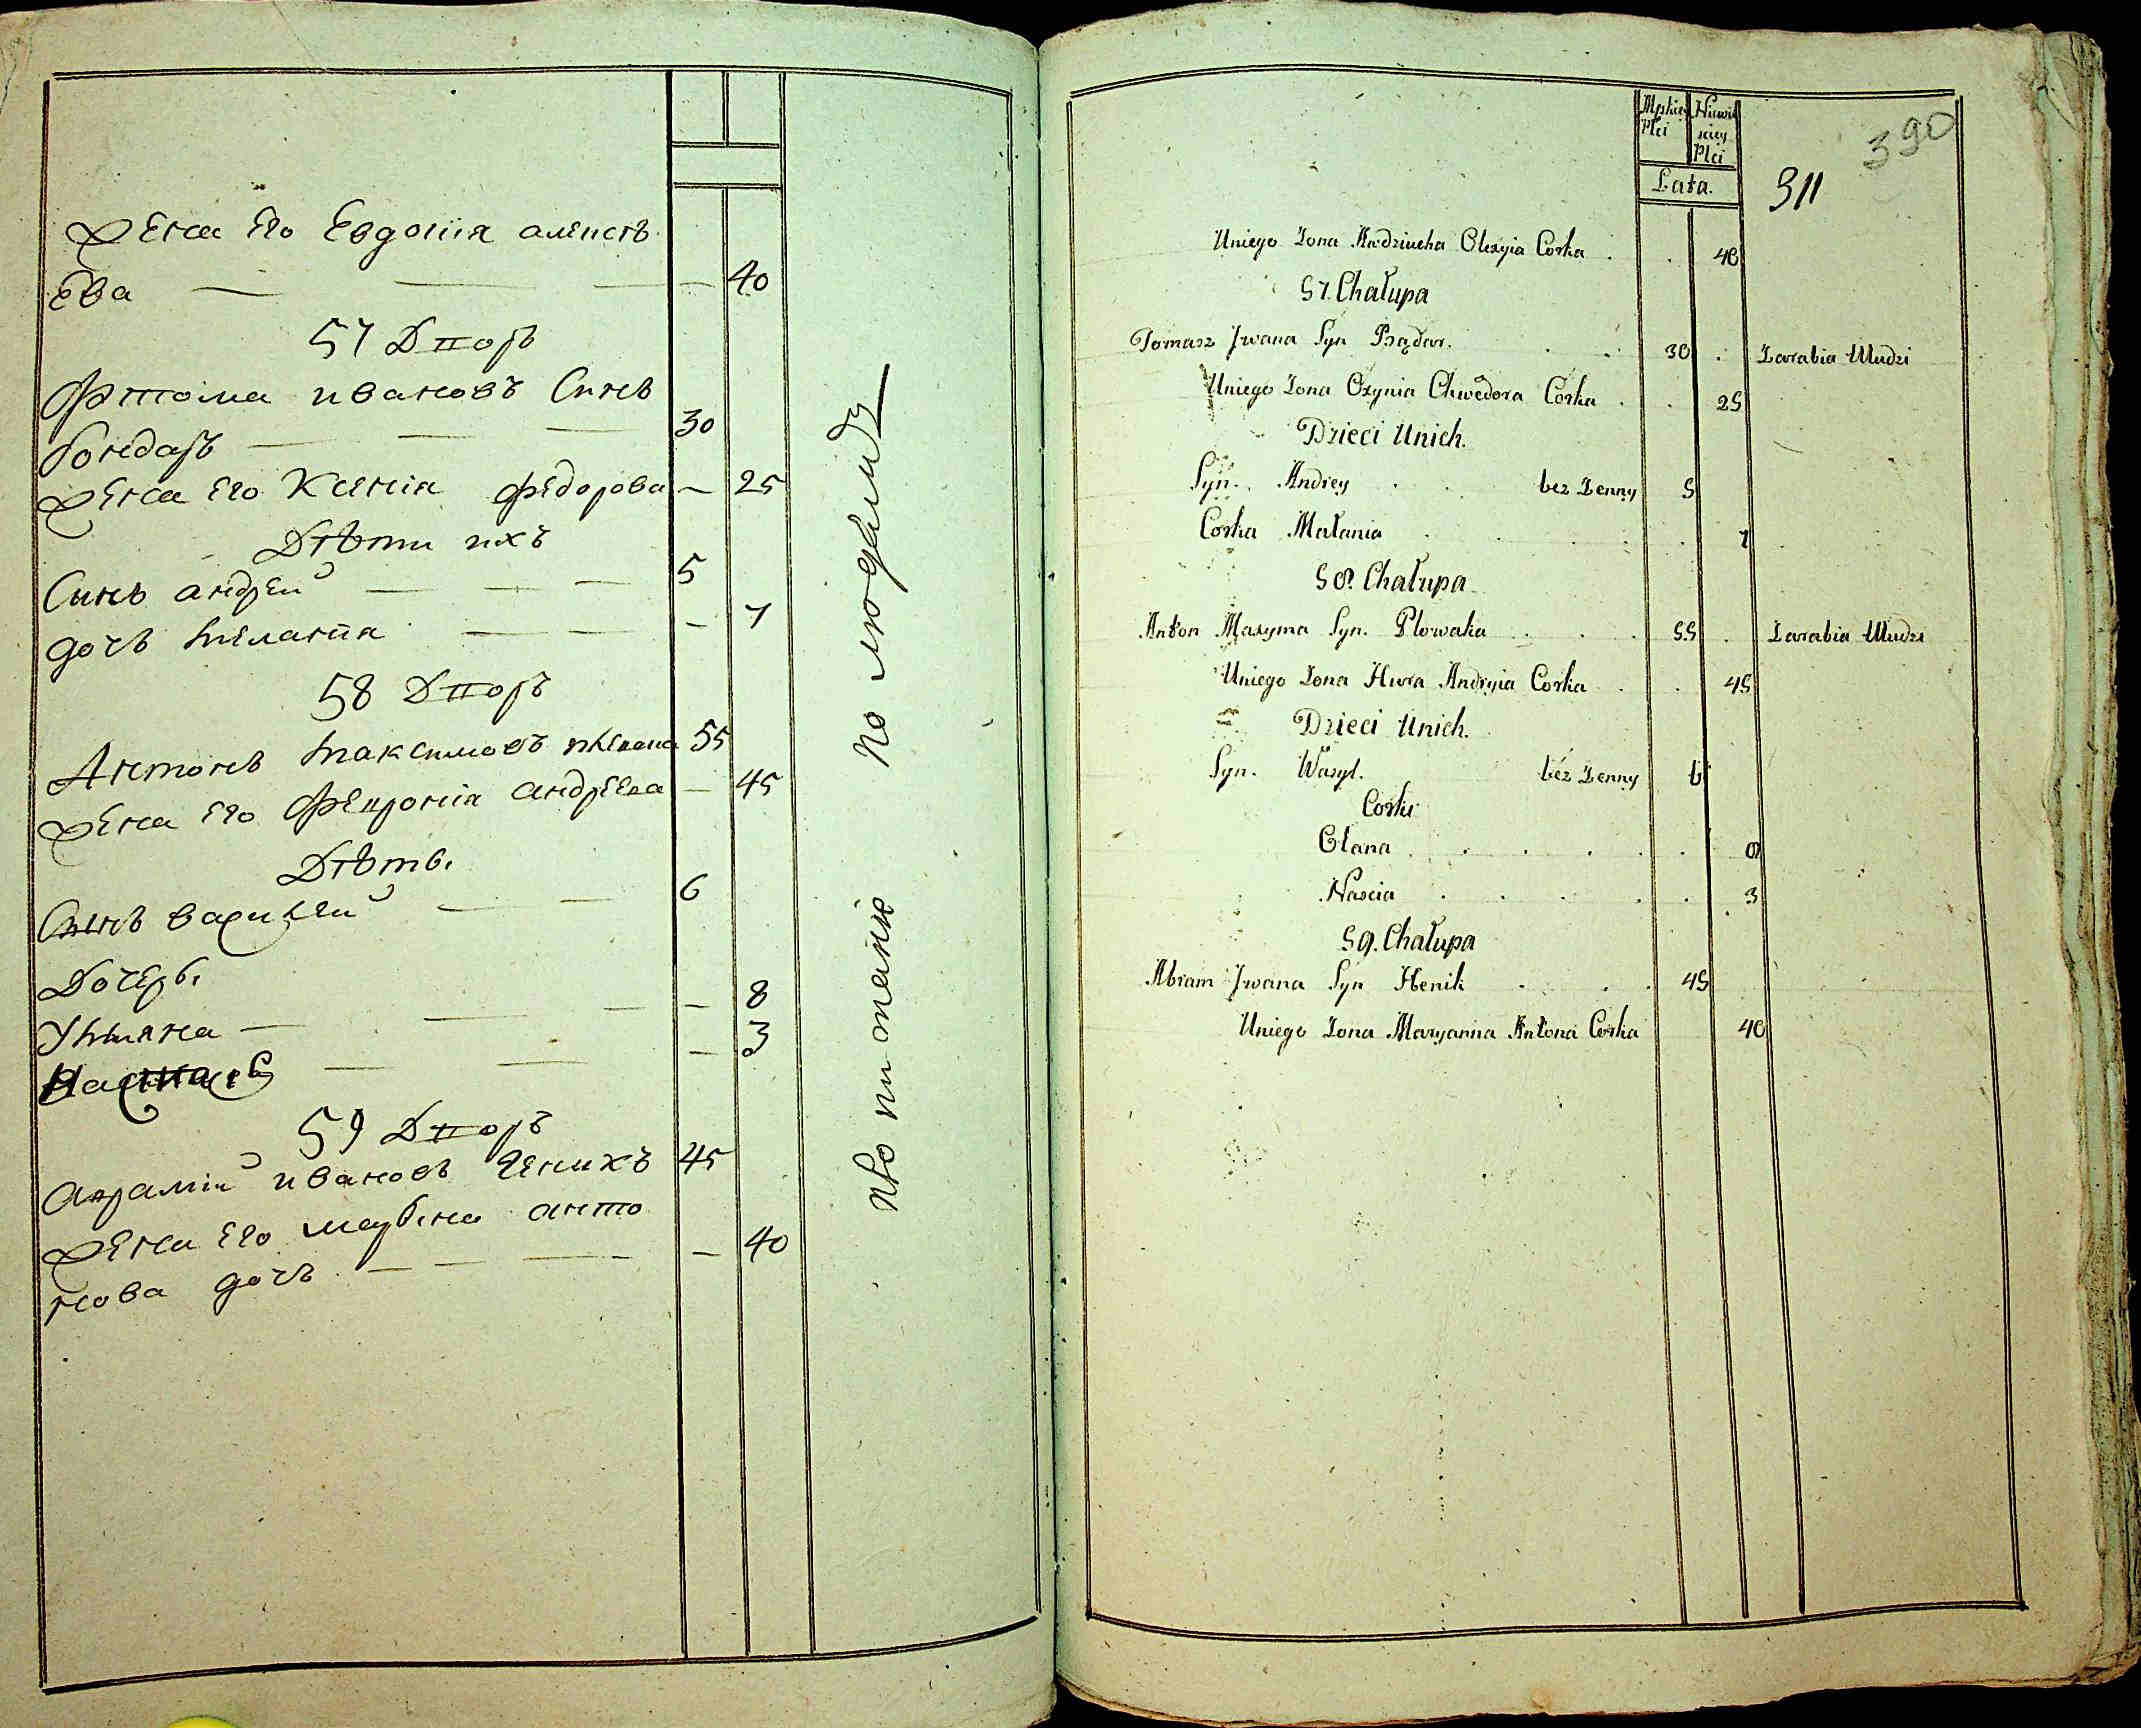 жена его Евдокия алексѣ
ева — — — — 40
57 Дворъ
Фтома ивановъ Сынъ
бондарь — — — 30
жена его Ксенiя федорова — 25
Дѣти ихъ
Сынъ андрей — — — 5
дочь меланiя — — — — 7
58 Дворъ
Антонъ максимовъ 55
жена его Феврониiя андреева — 45
Дѣти
Сынъ василей — — 6
Дочери
Ульяна — — — — 8
— — — 3
59 Дворъ
аврамiй ивановъ Геникъ 45
жена его марьяна анто
нова дочь — — — — 40
по людямъ
пропитание
Męskiey Płci
Niewieściey Płci
Lata.
311
390
Uniego Zona Audziucha Olexyia Corka . . 40
57. Chałupa
Tomasz Jwana Syn Bądar. . . 30 . Zarabia Uludzi
Uniego Zona Oxynia Chwedora Corka . . 25
Dzieci Unich.
Syn. Andrey . . bez Zenny 5
Corka Małania . . . . . . 7
58. Chałupa
Anton Maxyma Syn. Plowaka . . . 55 . Zarabia Uludzi
Uniego Zona Hwra Andryia Corka . . 45
Dzieci Unich.
Syn. Wasyl. bez Zenny 6
Corki
Ulana . . . . . . 8
Nascia . . . . . . 3
59. Chałupa
Abram Jwana Syn Henik . . . . 45
Uniego Zona Maryanna Antona Corka 40